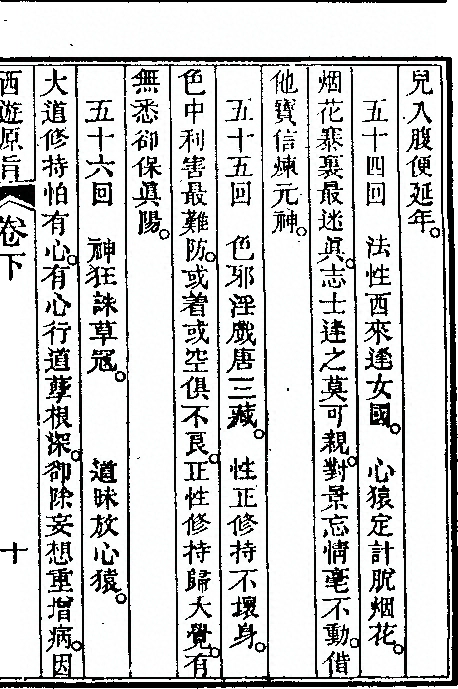 兒入腹便延年。
五十四回　法性西來逢女國。　心猿定計脫烟花。
烟花寨裏最迷眞。志士逢之莫可親。對景忘情毫不動。借
他寶信煉元神。
五十五回　色邪淫戲唐三藏。　性正修持不壞身。
色中利害最難防。或着或空俱不良。正性修持歸大覺。有
無悉卻保眞陽。
五十六回　神狂誅草冦。　道昧放心猿。
大道修持怕有心。有心行道孽根深。卻除妄想重增病。因
西遊原旨　卷下　十